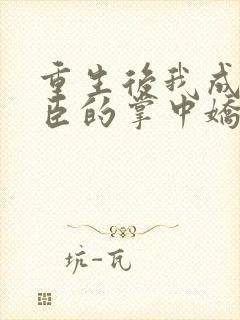 重生後我成
臣的掌中嬌
坑-瓦